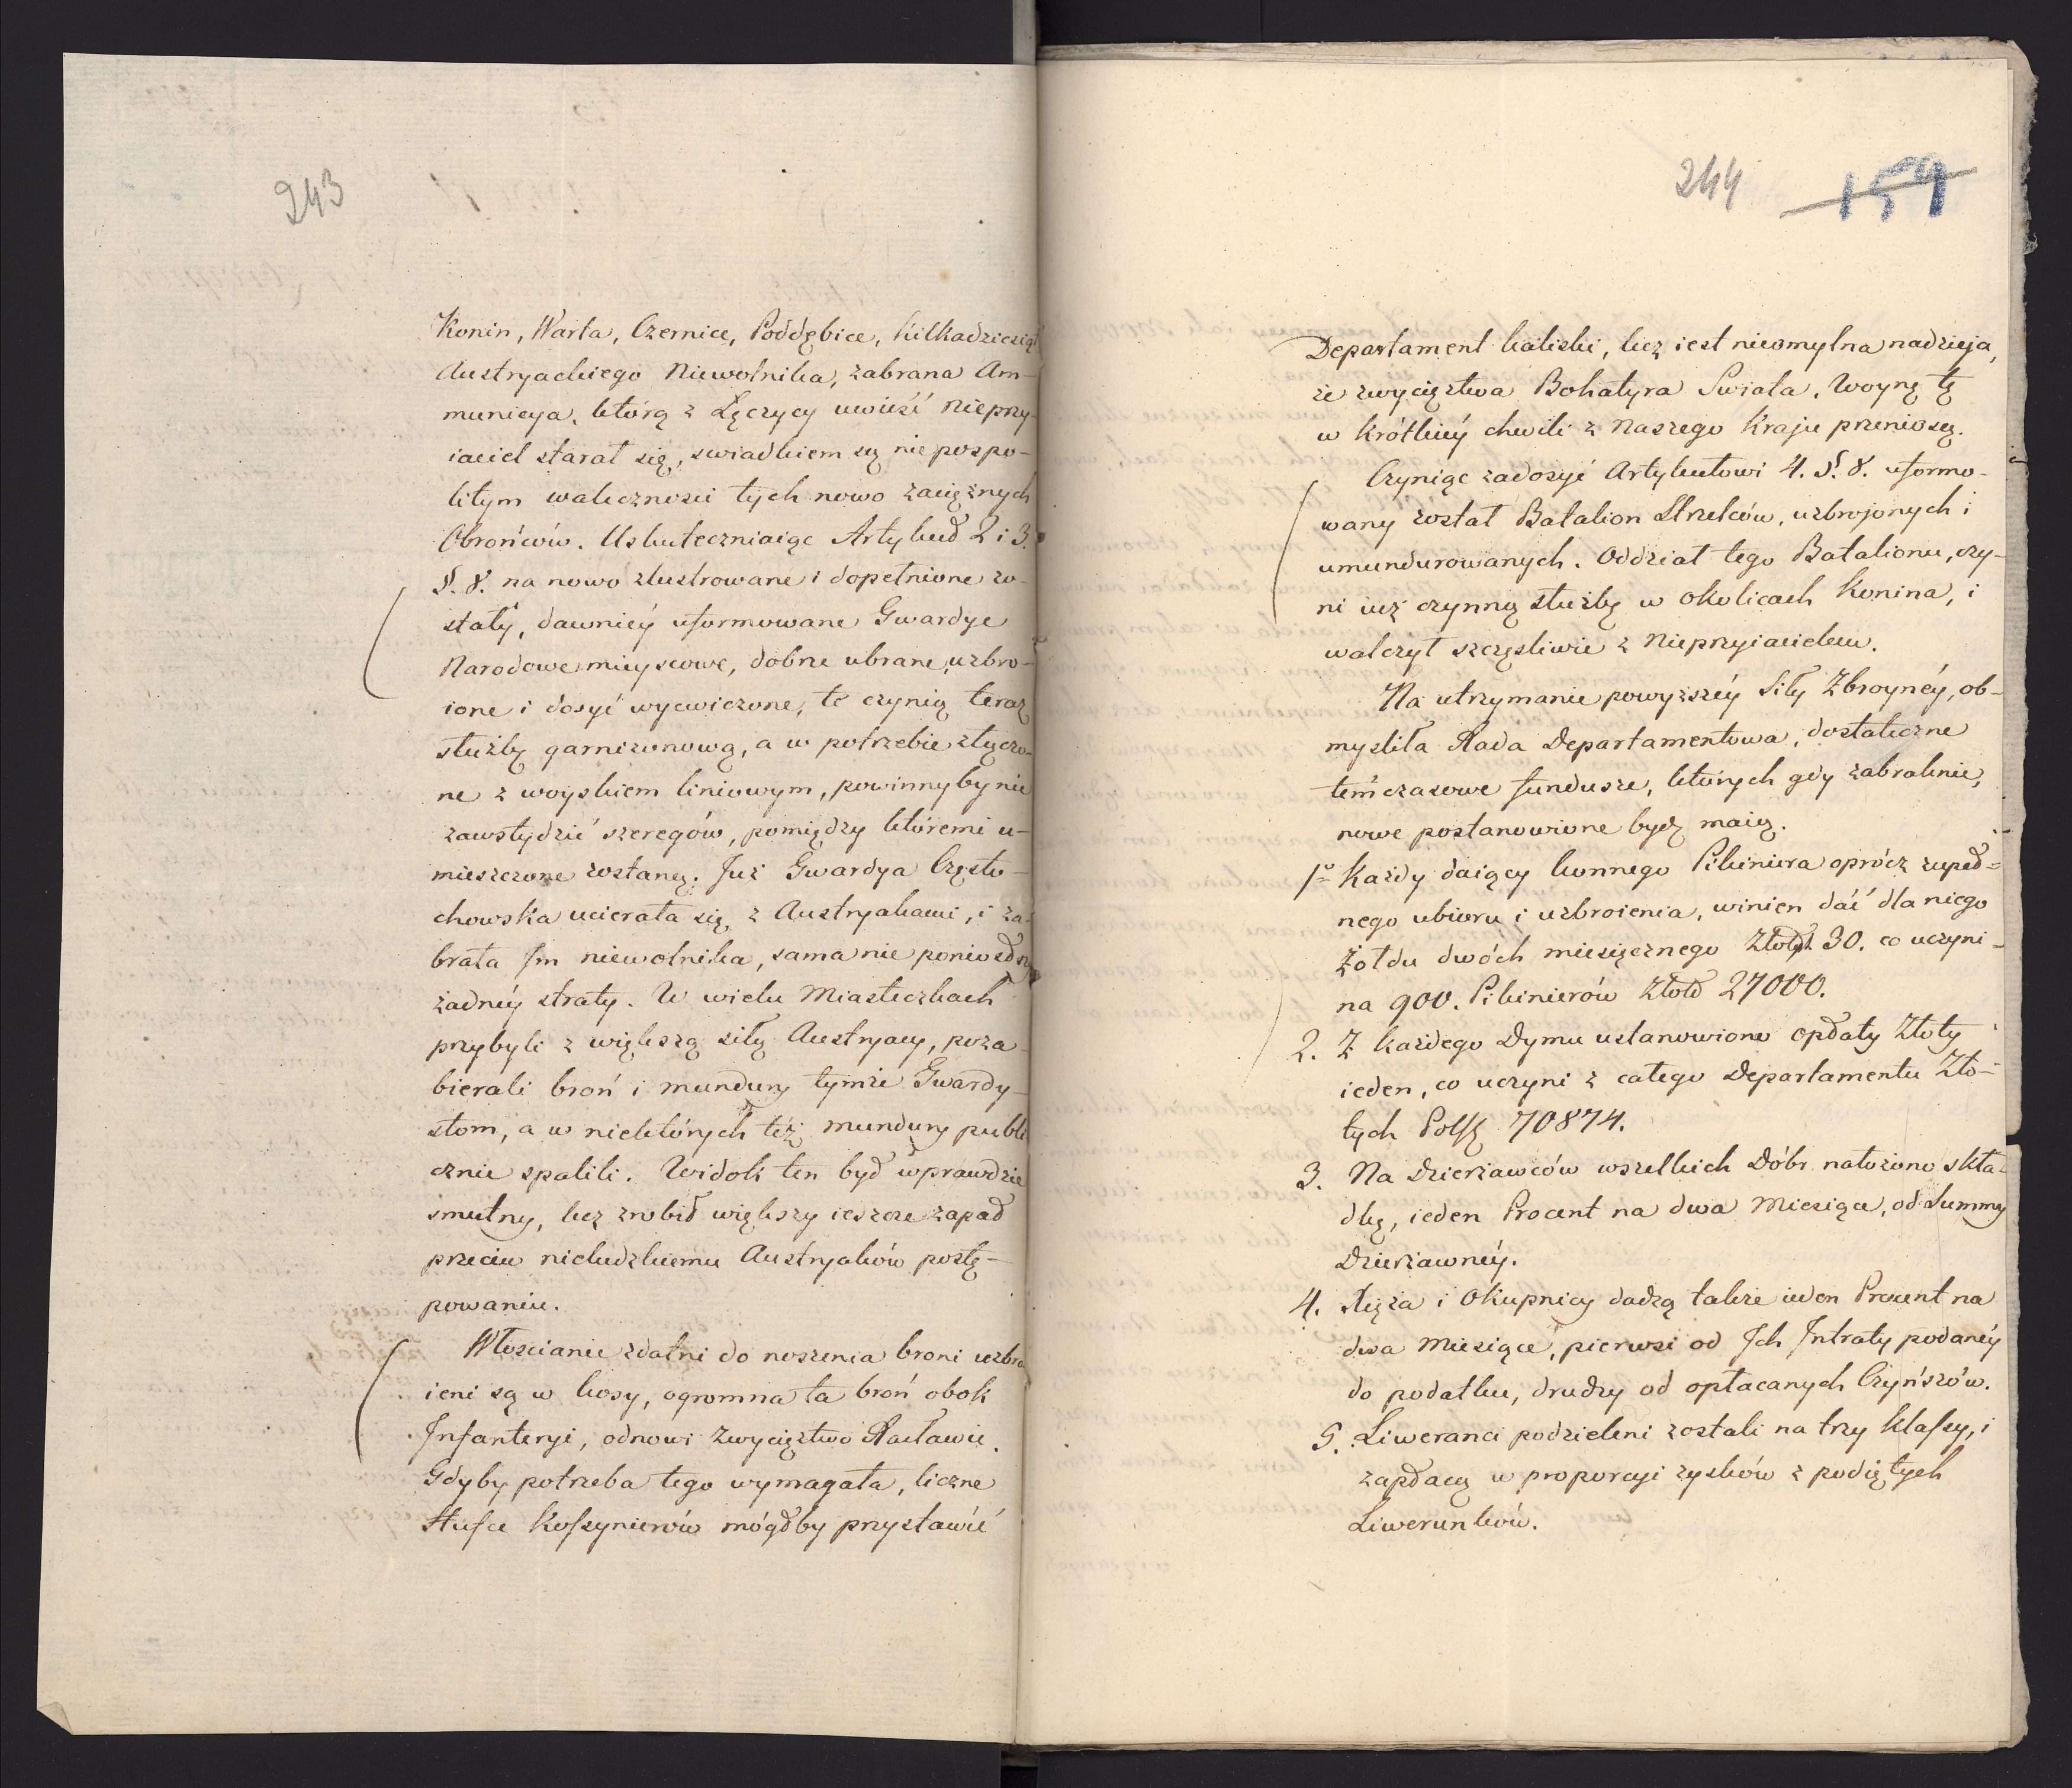 243
Konin, Warta, Czernice, Poddębice, kilkadziesiąt
Austryackiego Niewolnika, zabrana Am-
municya, którą z Łęczycy uwieźć nieprzy-
iaciel starał się, swiadkiem są niepospo-
litym waleczności tych nowo zaciężnych
Obrońców. Uskuteczniaiąc Artykuł 2 i 3.
§. 8. na nowo zlustrowane i dopełnione zo-
stały, dawniéy uformowane Gwardye
Narodowe mieyscowe, dobrze ubrane, uzbro-
ione i dosyć wycwiczone, te czynią teraz
służbę garnizonową, a w potrzebie złączo-
ne z woyskiem liniowym, powinnyby nie
zawstydzić szeregów, pomiędzy któremi u-
mieszczone zostaną. Już Gwardya Często-
chowska ucierała się z Austryakami, i za-
brała Im niewolnika, sama nie poniosłszy
żadnéy straty. W wielu Miasteczkach
przybyli z większą siłą Austryacy, poza-
bierali broń i mundury tymże Gwardy-
stom, a w niektórych też mundury publi
cznie spalili. Widok ten był wprawdzie
smutny, lecz zrobił większy ieszcze zapał
przeciw nieludzkiemu Austryaków postę-
powaniu.
Włoscianie zdatni do noszenia broni uzbro
ieni są w kosy, ogromna ta broń obok
Infanteryi, odnowi Zwycięztwo Racławic.
Gdyby potrzeba tego wymagała, liczne
Hufce Kossynierów mógłby przystawić
244 159
Departament kaliski, lecz iest nieomylna nadzieja,
że zwycięztwa Bohatyra Swiata, Woynę tę
w krótkiéy chwili z Naszego Kraju przeniosą.
Czyniąc zadosyć Artykułowi 4. §. 8. uformo-
wany został Batalion Strzelców, uzbrojonych i
umundurowanych. Oddział tego Batalionu, czy-
ni iuż czynną służbę w okolicach Konina, i
walczył szczęsliwie z Nieprzyiacielem.
Na utrzymanie powyższéy Siły Zbroynéy, ob-
mysliła Rada Departamentowa, dostateczne
temczasowe fundusze, których gdy zabraknie,
nowe postanowione bydź maią.
1o Każdy daiący konnego Pikiniera oprócz zupeł-
nego ubioru i uzbroienia, winien dać dla niego
Żołdu dwóch miesięcznego Złotych 30. co uczyni-
na 900. Pikinierów Złotd 27000.
2. Z każdego Dymu ustanowiono opłaty Złoty
ieden, co uczyni z całego Departamentu Zło-
tych Polsk 70874.
3. Na Dzierżawców wszelkich Dóbr nałożono skła-
dkę, ieden Procent na dwa Miesiące, od Summy
Dzierżawnéy.
4. Xięża i Okupnicy dadzą także ieden Procent na
dwa Miesiące, pierwsi od Ich Intraty podanéy
do podatku, drudzy od opłacanych Czyńszów.
5. Liweranci podzieleni zostali na trzy Klassy, i
zapłacą w proporcyi zysków z podiętych
Liwerunków.